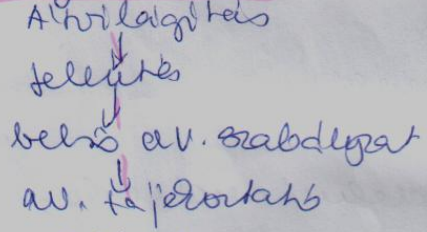 Átvilágítás
jelentés
belső av. szabályzat
av. tájékoztató